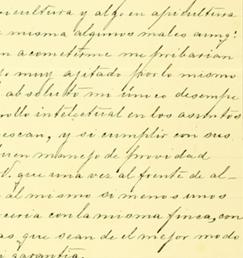 cultura y algo en apicultura
misma algunos males aunq.e
acometerme me privarian
muy agetado por lo mismo
absoluto mi único desempe
rollo intelectual en los asuntos
escan, y si cumplir con sus
buen manejo de providad
V. que una vez al frente de al-
al mismo si menos unos
ceria con la misma finca, con
as, que sean de el mejor modo
garantía.